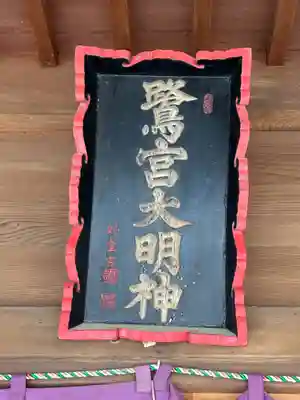 鷺宮大明神